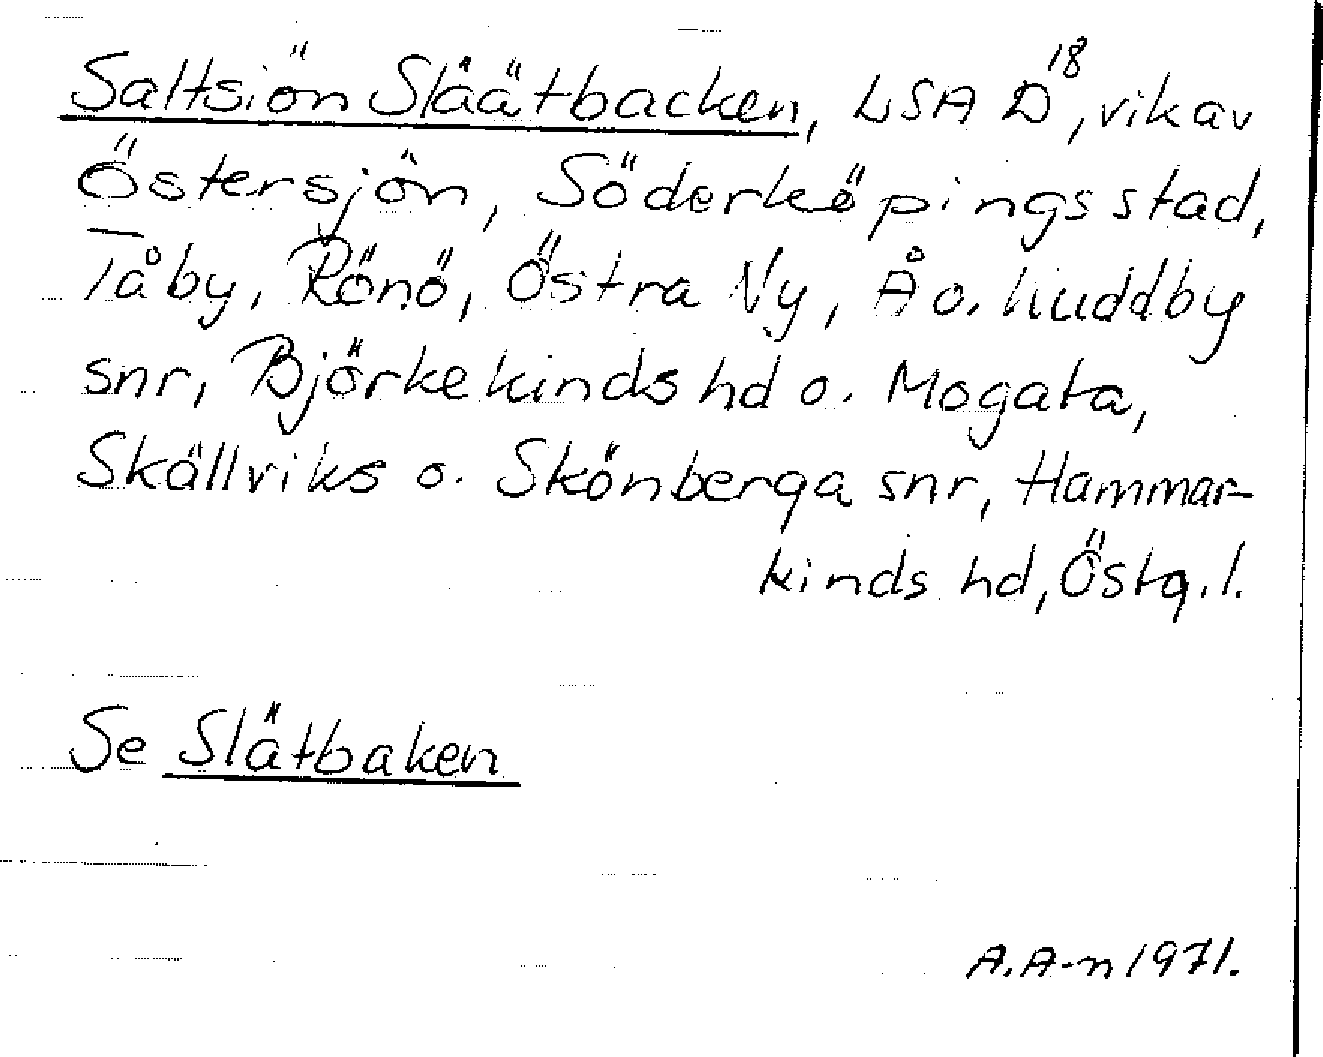 Saltsiön Slåätbacken, LSA D18, vik av
Östersjön, Söderköpings stad,
Tåby, Rönö, Östra Ny, Å o. Kuddby
snr, Björkekinds hd o. Mogata,
Skällviks o. Skönberga snr, Hammar-
kinds hd, Östg.l.
Se Slätbaken
A.A-n 1971.